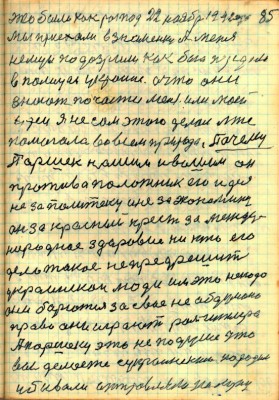 это было как раз под 22 ноября 1942 года 85
Мы приехали в Знаменку А меня
немцы подозрили как быто предала
в полицая украине. а что они
знают почасте меня или моей
идеи Я не сам этого делал мне
помогала во всем природа. Почему
Паршек нашим и вашим он
противоположник его идея
не за политику и не за экономику
он за красный крест за между-
народное здоровие ни кто его
дело такое не предрешит
украинской люди им это не надо
они борются за свое не обдуманно
право они играют роль
А Паршеку это не подуше что
вы делаете с украинским народом
убивали отправляли